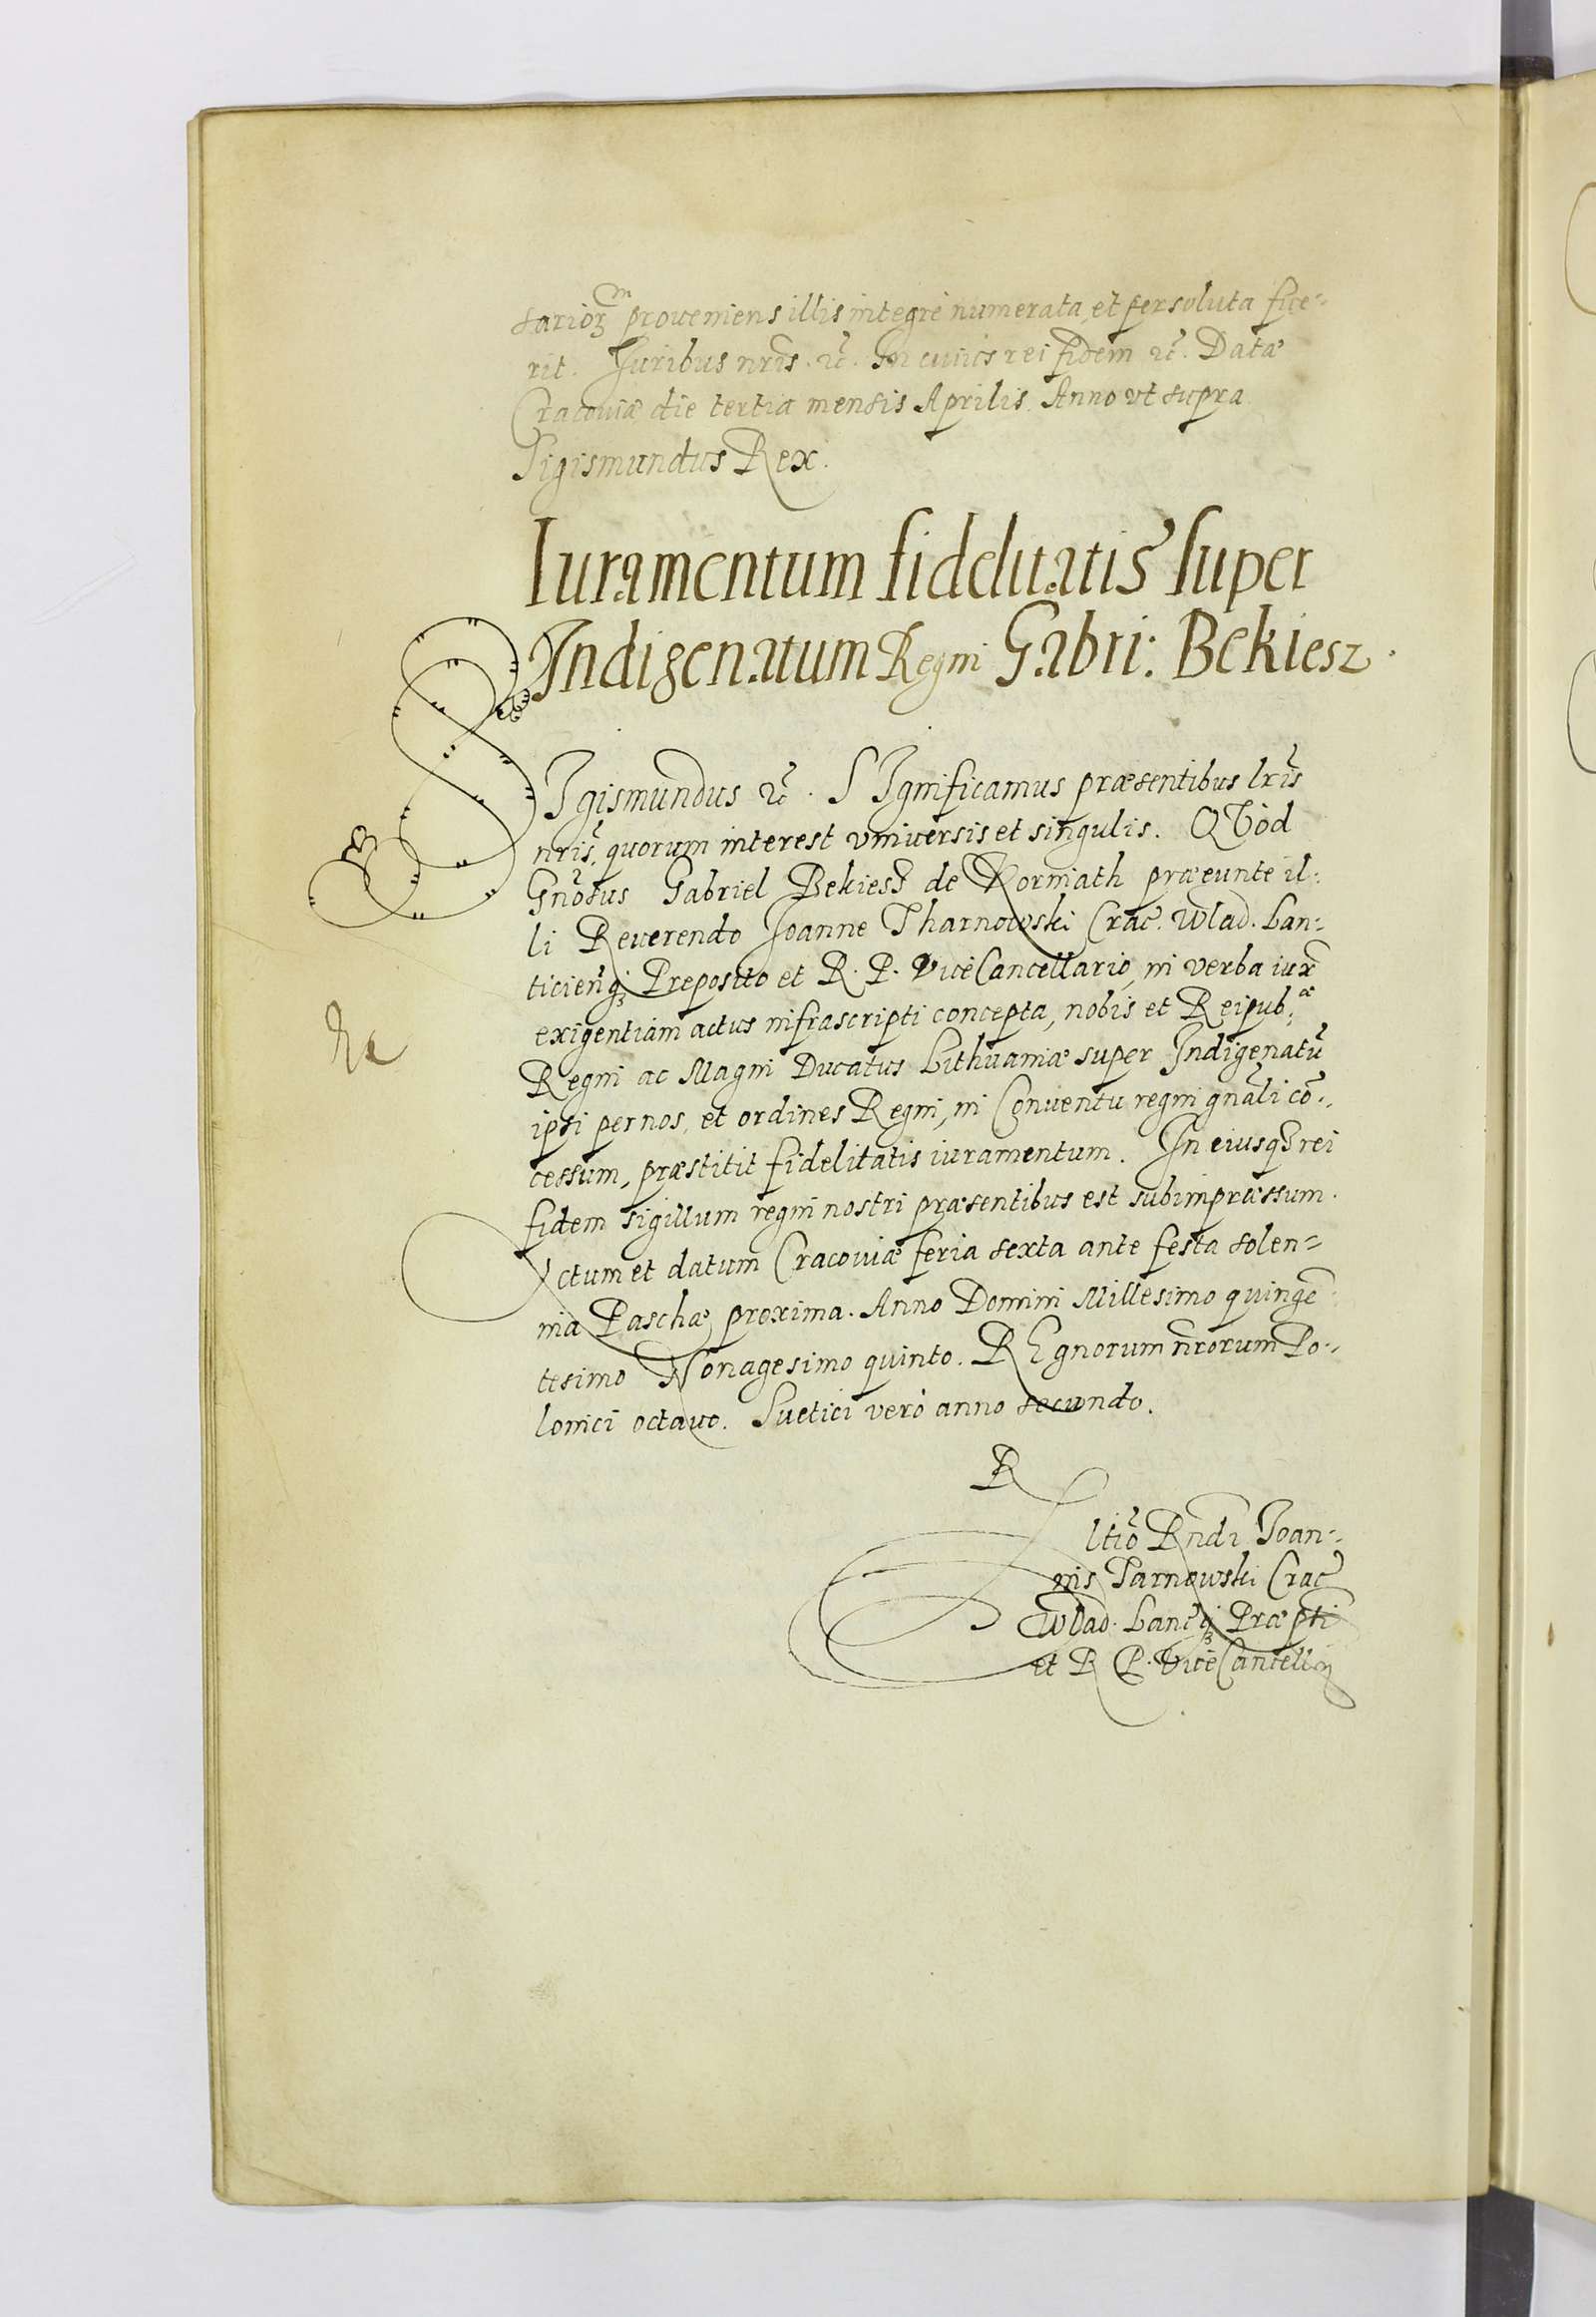 sarior[um] proveniens illis integrè numerata, et persoluta fue-
rit. Iuribus nr̃is. ꝛc̃. In cuius rei fidem ꝛc̃. Datæ
Cracoviæ die tertia mensis Aprilis. Anno vt supra
Sigismundus Rex.
Iuramentum fidelitatis super
Indigenatum Regni Gabri: Bekiesz.
SIgismundus ꝛc̃. SIgnificamus præsentibus lr̃is
nr̃is, quorum interest vniversis et singulis. QVòd
Gñosus Gabriel Bekiesz de Korniath præeunte il-
li Reverendo Joanne Tharnowski Crac̃. Wlad. Lan-
ticien̄q; Preposito et R. P. ViceCancellario, in verba iux̃
exigentiam actus infrascripti concepta, nobis et Reipub:æ
Regni ac Magni Ducatus Lithuaniæ super Indigenatũ
ipsi per nos, et ordines Regni, in Conventu regni gñali cõ-
cessum, præstitit fidelitatis iuramentum. In eiusq; rei
fidem sigillum regni nostri præsentibus est subimpræssum.
Actum et datum Cracoviæ feria sexta ante festa solen-
nia Paschæ proxima. Anno Domini Millesimo quingẽ
tesimo Nonagesimo quinto. REgnorum nr̃orum Po-
lonici octavo. Suetici verò anno secundo.
R
Rltiõ Rñdi Joan-
nis Tarnowski Crac̃
Wlad. Lanc̃q; Præpti
et R P. ViceCancellij